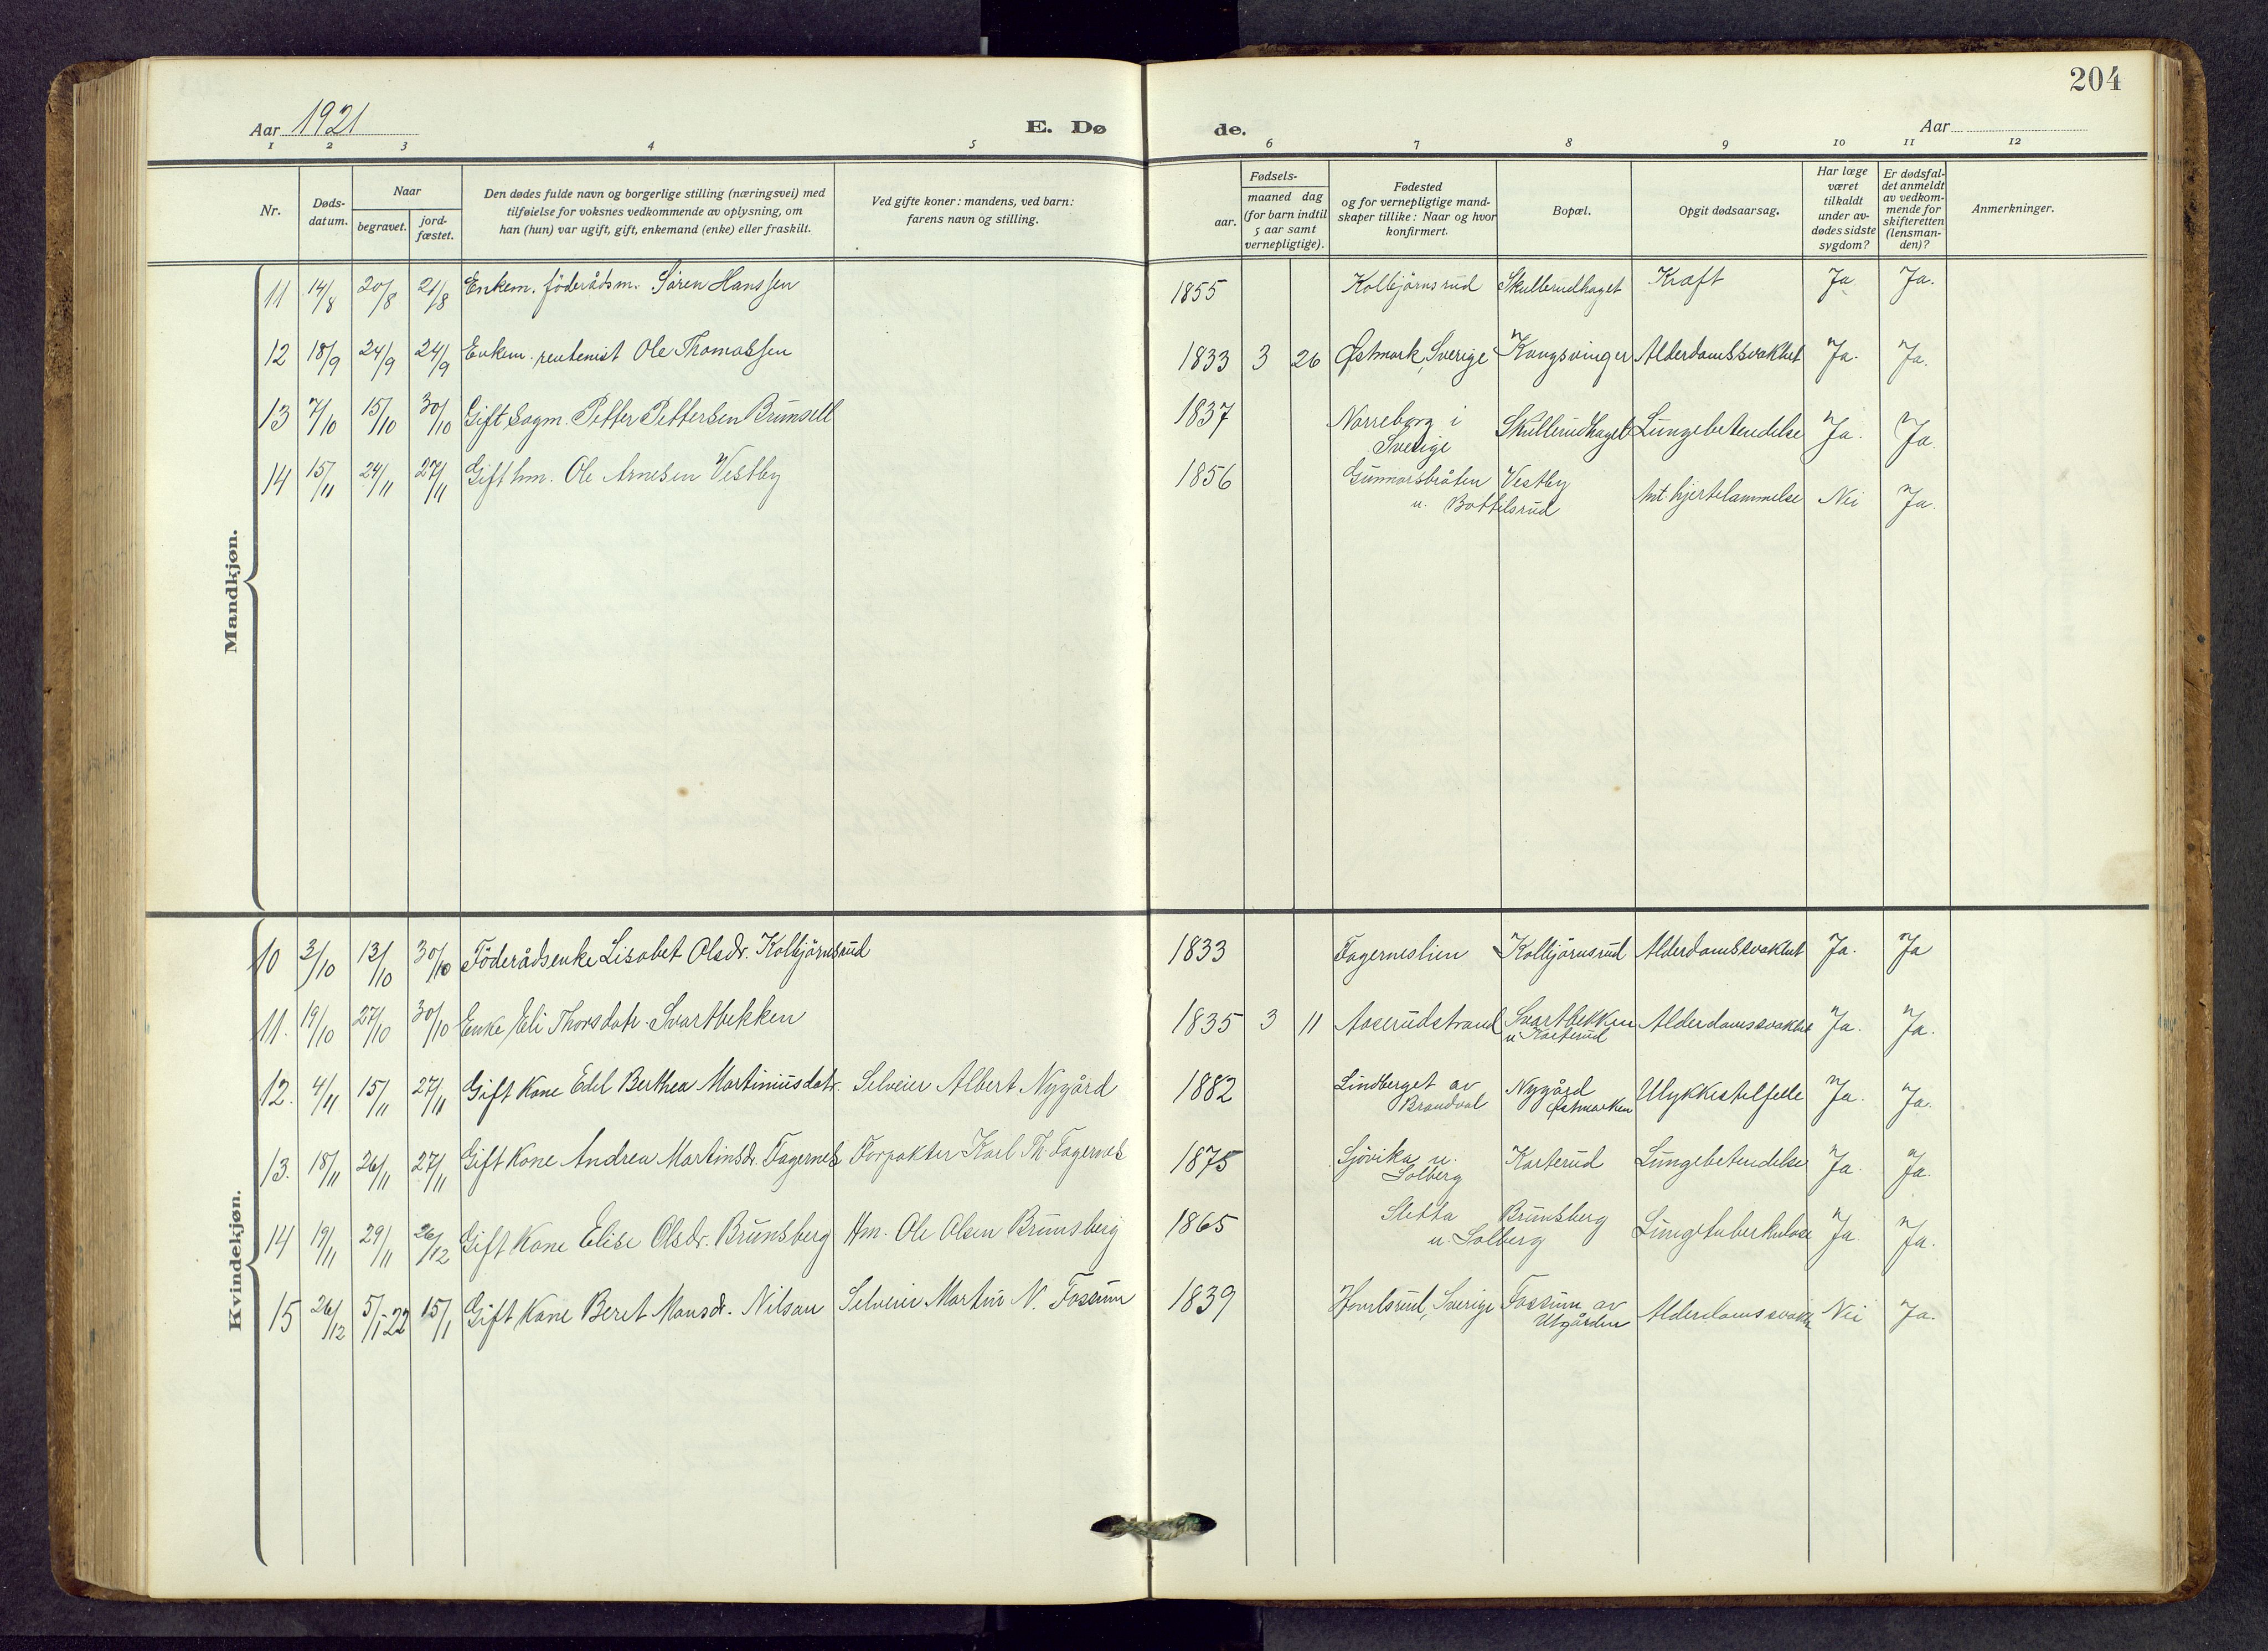 204
Aar 1921
E. Dø
de.
Aar
1 2 3 4 5 6 7 8 9 10 11 12
Nr.
Døds-
datum.
Naar
begravet.
jord-
fæstet.
Den dødes fulde navn og borgerlige stilling (næringsvei) med
tilføielse for voksnes vedkommende av oplysning, om
han (hun) var ugift, gift, enkemand (enke) eller fraskilt.
Ved gifte koner: mandens, ved barn:
farens navn og stilling.
Fødsels-
aar.
maaned dag
(for barn indtil
5 aar samt
vernepligtige).
Fødested
og for vernepligtige mand-
skaper tillike: Naar og hvor
konfirmert.
Bopæl.
Opgit dødsaarsag.
Har læge
været
tilkaldt
under av-
dødes sidste
sygdom?
Er dødsfal-
det anmeldt
av vedkom-
mende for
skifteretten
(lensman-
den)?
Anmerkninger.
Mandkjøn.
11 14/8 20/8 21/8 Enkem. föderådsm. Sören Hanssen 1855 Kolbjörnsrud Skullerudhaget Kræft Ja Ja.
12 18/9 24/9 24/9 Enkem. rentenist Ole Thomassen 1833 3 26 Østmark, Sverige Kongsvinger Alderdomssvakhet Ja. Ja.
13 7/10 15/10 30/10 Gift Sagm. Petter Pettersen Brunsell 1837 Norreborg i
Sverige Skullerudhaget Lungebetendelse Ja. Ja.
14 15/11 24/11 27/11 Gift hm. Ole Arnesen Vestby 1856 Gunnarsbråten Vestby
u. Bottilsrud Ant. hjertelammelse Nei Ja.
Kvindekjøn.
10 3/10 13/10 30/10 Föderådsenke Lisabet Olsdr. Kolbjörnsrud 1833 Fagerneslien Kolbjörnsrud Alderdomssvakhet Ja. Ja
11. 19/10 27/10 30/10 Enke Eli Thorsdatr. Svartbekken 1835 3 11 Aaserudstrand Svartbekken
u. Karterud Alderdomssvakhet Ja. Ja.
12. 4/11 15/11 27/11 Gift Kone Edel Berthea Martiniusdatr. Selveier Albert Nygård 1882 Lindberget av
Brandval Nygård
Østmarken Ulykkestilfelle Ja. Ja.
13. 18/11 26/11 27/11 Gift Kone Andrea Martinsdr. Fagernes Forpakter Karl Th. Fagernes 1875 Sjövika u.
Solberg Karterud Lungebetendelse Ja. Ja.
14 19/11 29/11 26/12 Gift Kone Elise Olsdr. Brunsberg Hm. Ole Olsen Brunsberg 1865 Sletta Brunsberg
u. Solberg Lungetuberkulose Ja Ja.
15 26/12 5/1-22 15/1 Gift Kone Beret Monsdr. Nilsson Selveier Martin N. Fossum 1839 Sverige Fossum av
Utgården Alderdomssvakh Nei Ja.